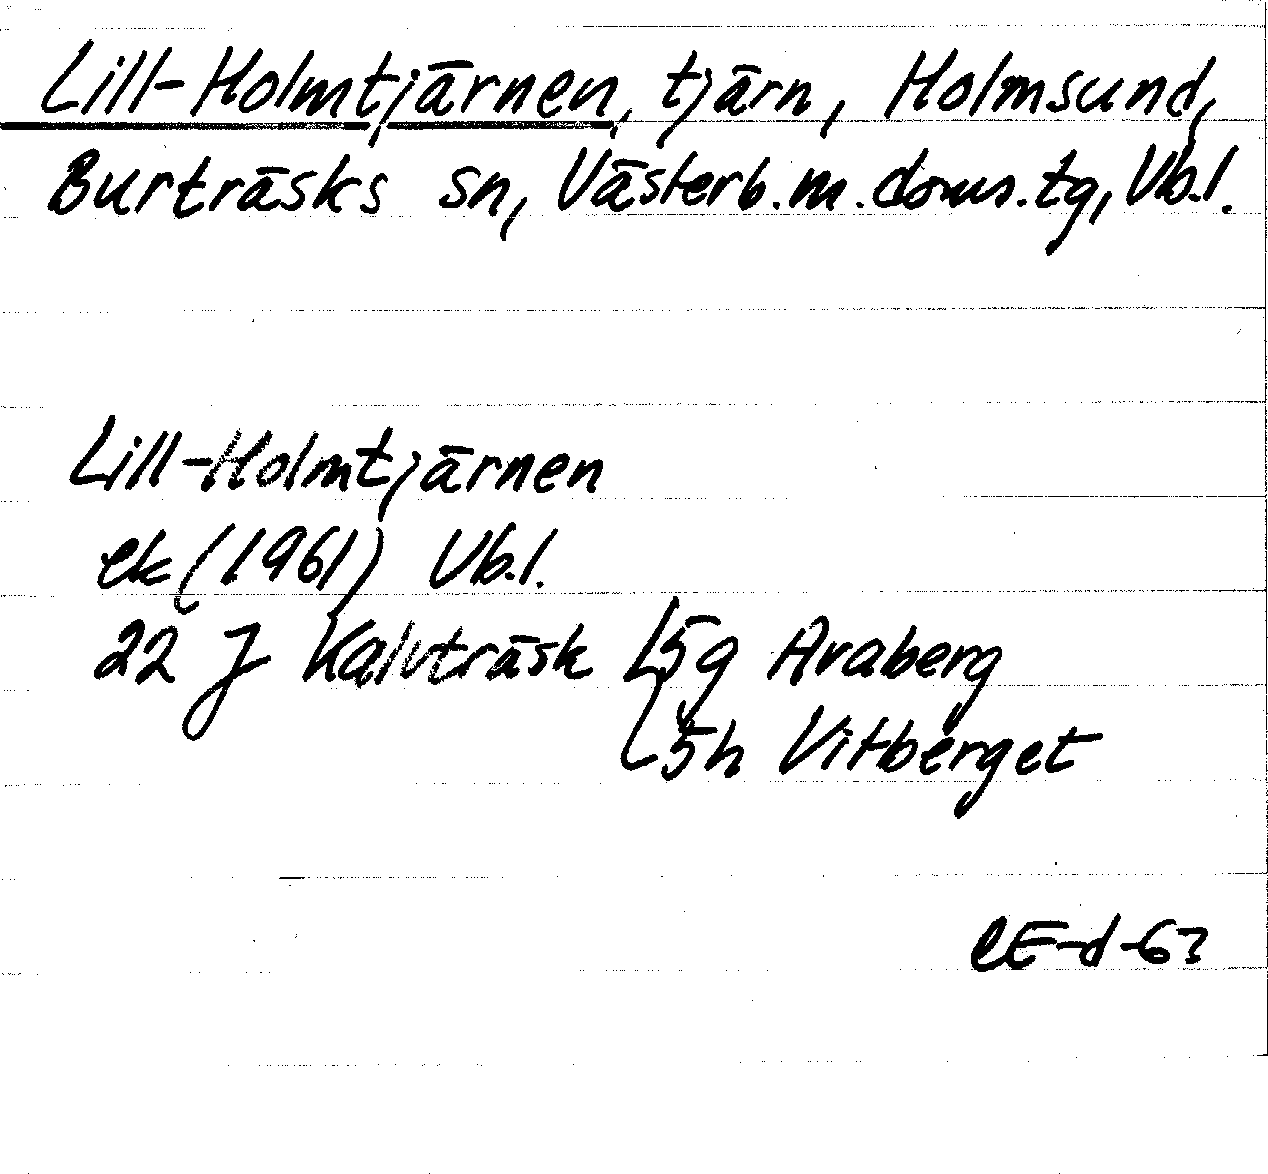 Lill-Holmtjärnen, tjärn, Holmsund,
Burträsks sn, Västerb.m.doms.tg, Vb.l.
Lill-Holmtjärnen
ek (1961) Vb.l.
22 J Kalvträsk 5g Avaberg
5h Vitberget
CE-d-67